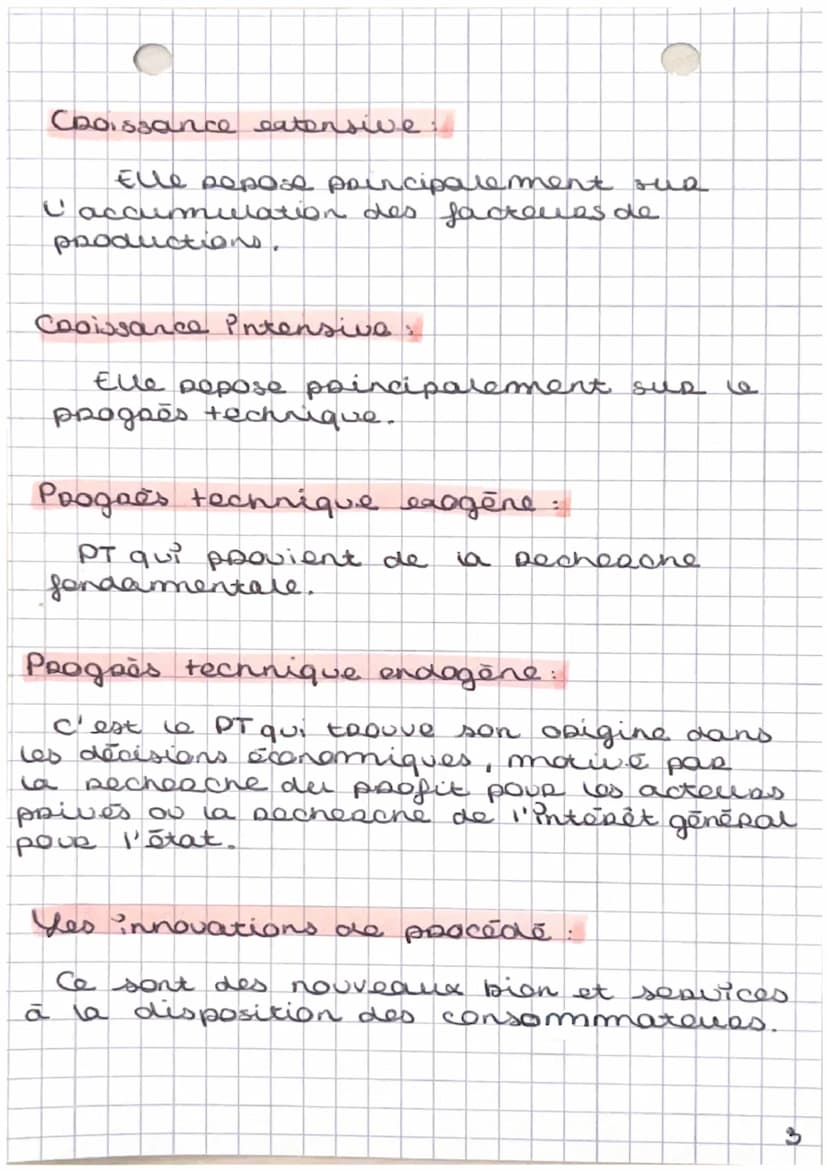 Croissance extensive :
Elle repose principalement sur
l'accummulation des facteurs de
productions.
Croissance intensive :
Elle repose principalement sur le
progrès technique.
Progrès technique exogène :
PT qui provient de la recherche
fondamentale.
Progrès technique endogène :
C'est le PT qui trouve son origine dans
les décisions économiques, motivé par
la recherche du profit pour les acteurs
privés ou la recherche de l'intérêt général
pour l'état.
Les innovations de procédé :
Ce sont des nouveaux bien et services
à la disposition des consommateurs.
3